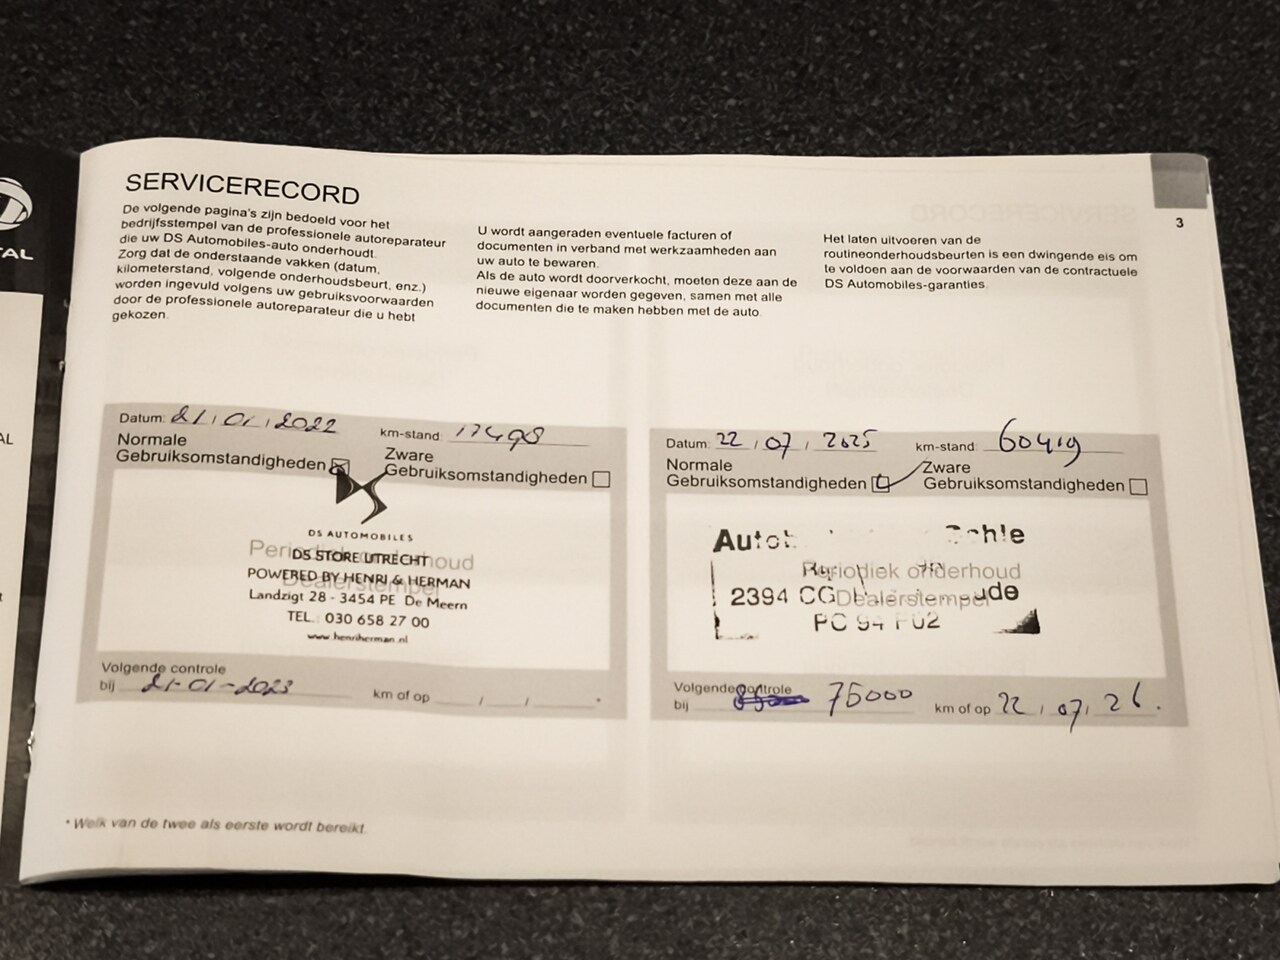 TAL
AL
SERVICERECORD
De volgende pagina's zijn bedoeld voor het
bedrijfsstempel van de professionele autoreparateur
die uw DS Automobiles-auto onderhoudt.
Zorg dat de onderstaande vakken (datum,
kilometerstand, volgende onderhoudsbeurt, enz.)
worden ingevuld volgens uw gebruiksvoorwaarden
door de professionele autoreparateur die u hebt
gekozen.
U wordt aangeraden eventuele facturen of
documenten in verband met werkzaamheden aan
uw auto te bewaren.
Als de auto wordt doorverkocht, moeten deze aan de
nieuwe eigenaar worden gegeven, samen met alle
documenten die te maken hebben met de auto.
Het laten uitvoeren van de
routineonderhoudsbeurten is een dwingende eis om
te voldoen aan de voorwaarden van de contractuele
DS Automobiles-garanties.
3
Datum: 21 / 01 / 2022 km-stand: 17498
Normale
Gebruiksomstandigheden
Zware
Gebruiksomstandigheden
DS AUTOMOBILES
Periodiek onderhoud
DS STORE UTRECHT
Dealerstempel
POWERED BY HENRI & HERMAN
Landzigt 28 - 3454 PE De Meern
TEL.: 030 658 27 00
www.henriherman.nl
Volgende controle
bij 21-01-2023 km of op / / *
Datum: 22 / 07 / 2025 km-stand: 60419
Normale
Gebruiksomstandigheden
Zware
Gebruiksomstandigheden
Periodiek onderhoud
2394 CG
Dealerstempel
Volgende controle
bij 75000 km of op 22 / 07 / 26.
* Welk van de twee als eerste wordt bereikt.